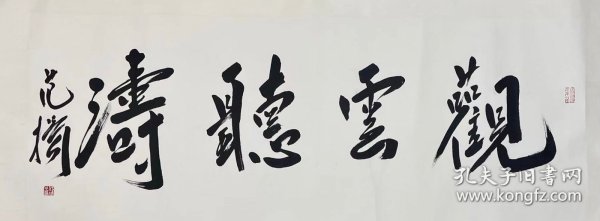 觀雲聽濤
范擴
孔夫子旧书网
www.kongfz.com